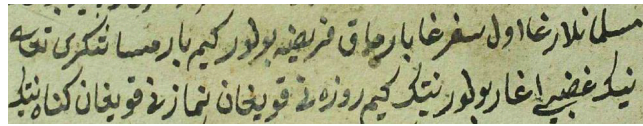 مسلمانلارغا اول سفرغا بارماق فریضه بولور کیم بارمسا تنکری تعالی
نینك غضبی اغار بولور نیتك کیم روزه نی قویغان نماز نی قویغان کناه نیتك